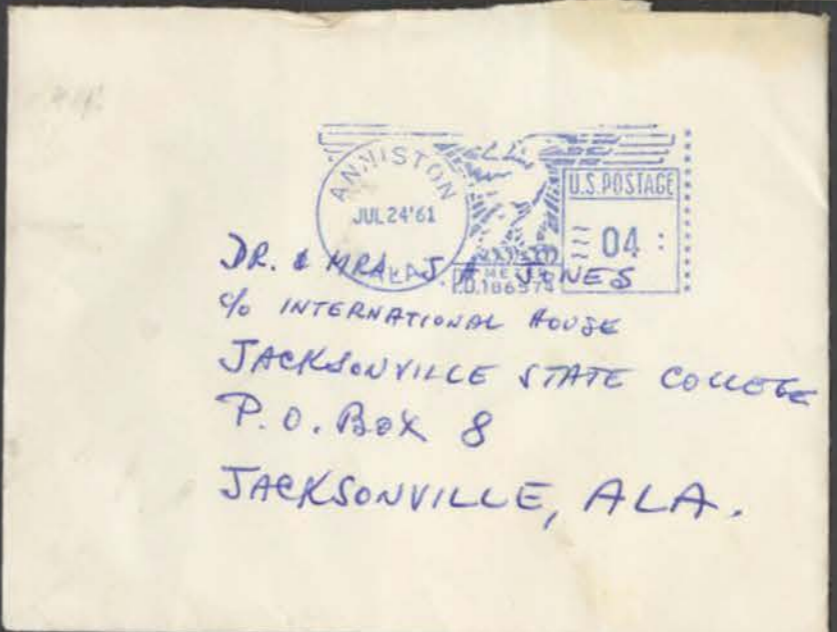 ANNISTON
JUL 24 '61
ALA.
U.S. POSTAGE
04
METER
P.B. 186574
DR. & MRS J. H. JONES
c/o INTERNATIONAL HOUSE
JACKSONVILLE STATE COLLEGE
P.O. Box 8
JACKSONVILLE, ALA.